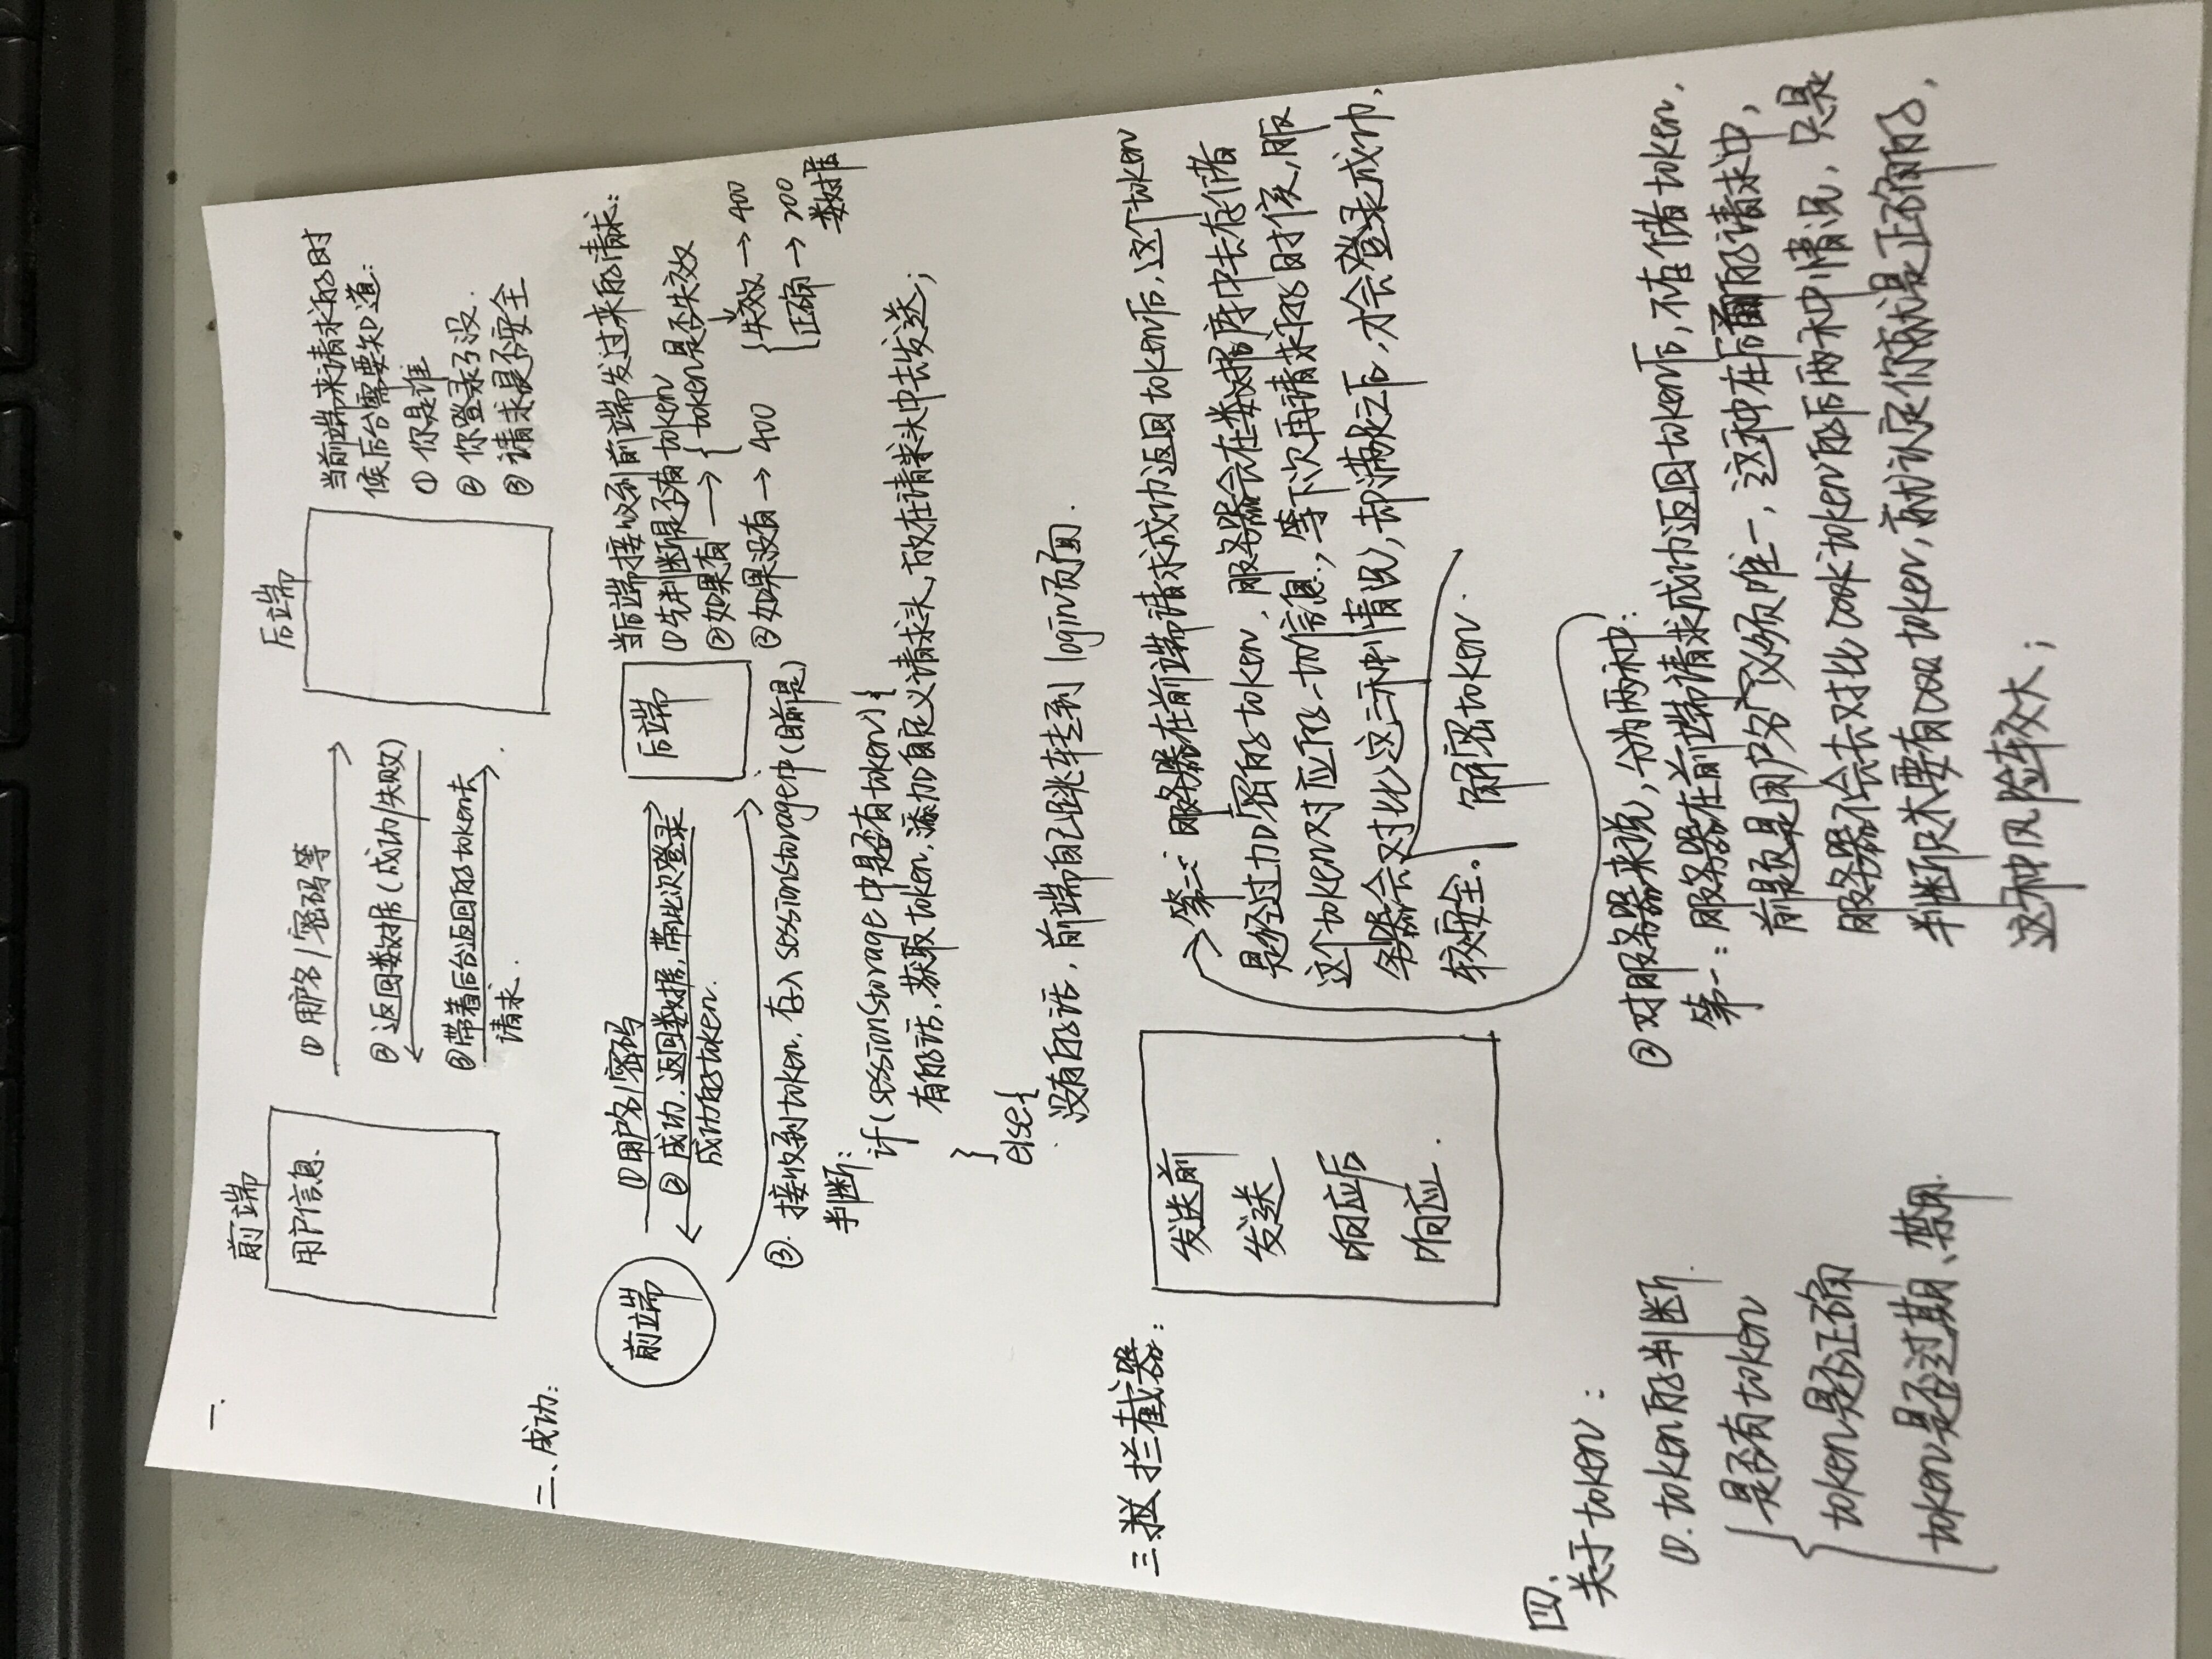 一.
前端
用户信息
① 用户名/密码等
② 返回数据(成功/失败)
③ 带着后台返回的token去
请求.
后端
当前端来请求的时
候后台需要知道:
① 你是谁
② 你登录了没.
③ 请求是否安全
二、成功:
前端
① 用户名/密码
② 成功.返回数据,带此次登录
成功的token.
后端
当后端接收到前端发过来的请求:
① 先判断是否有token
② 如果有 → { token是否失效
失效 → 400
正确 → 200
数据
③ 如果没有 → 400
③. 接收到token.存入sessionStorage中(目前是)
判断:
if(sessionStorage中是否有token){
有的话,获取token,添加自定义请求头,放在请求头中去发送;
}
else{
没有的话,前端自己跳转到login页面.
三. 拦截器:
发送前
发送
响应后
响应.
第二: 服务器在前端请求成功返回token后,这个token
是经过加密的token,服务器会在数据库中去存储
这个token对应的一切信息,等下次再请求的时候,服
务器会对比这三种情况,却满足之后,才会登录成功,
较安全。
解密token.
四、
关于token:
①. token的判断.
是否有token
token是否正确
token是否过期、禁用.
② 对服务器来说,分为两种:
第一: 服务器在前端请求成功返回token后,不存储token,
前提是用户名必须唯一,这种在后面的请求中,
服务器不会去对比token的后两种情况,只是
判断只要有token,就认定你就是正确的,
这种风险较大;